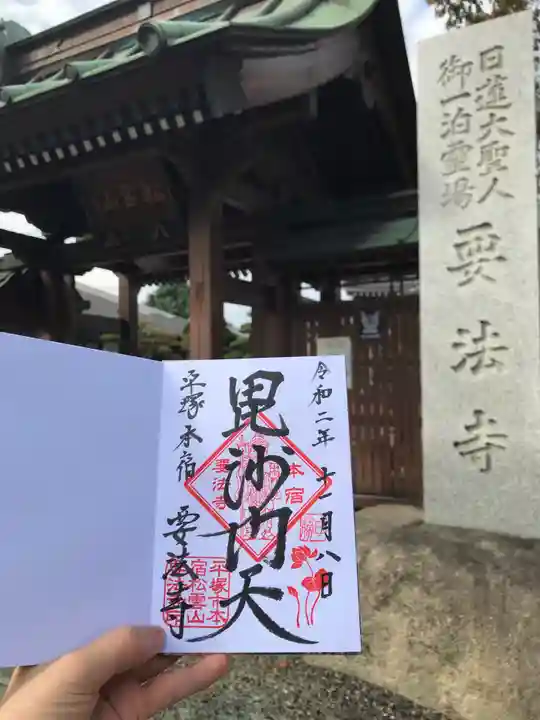 日蓮大聖人
御一泊霊場
要法寺
令和二年十一月八日
毘沙門天
平塚本宿
要法寺
本宿
要法寺
平塚市本
宿松雲山
要法寺